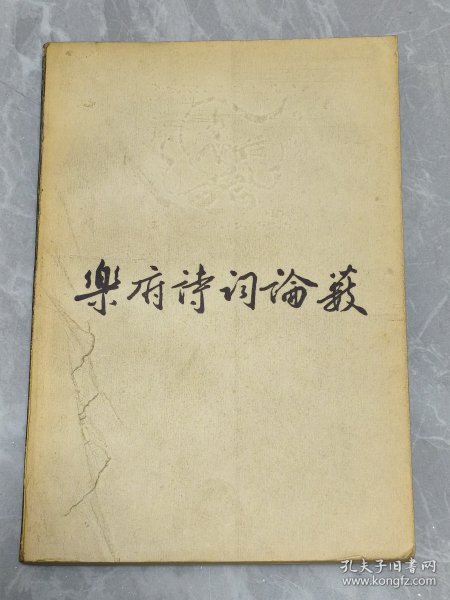 樂府诗词論薮
孔夫子旧书网
www.kongfz.com